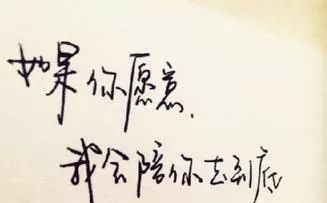 如果你愿意、
我会陪你去到底